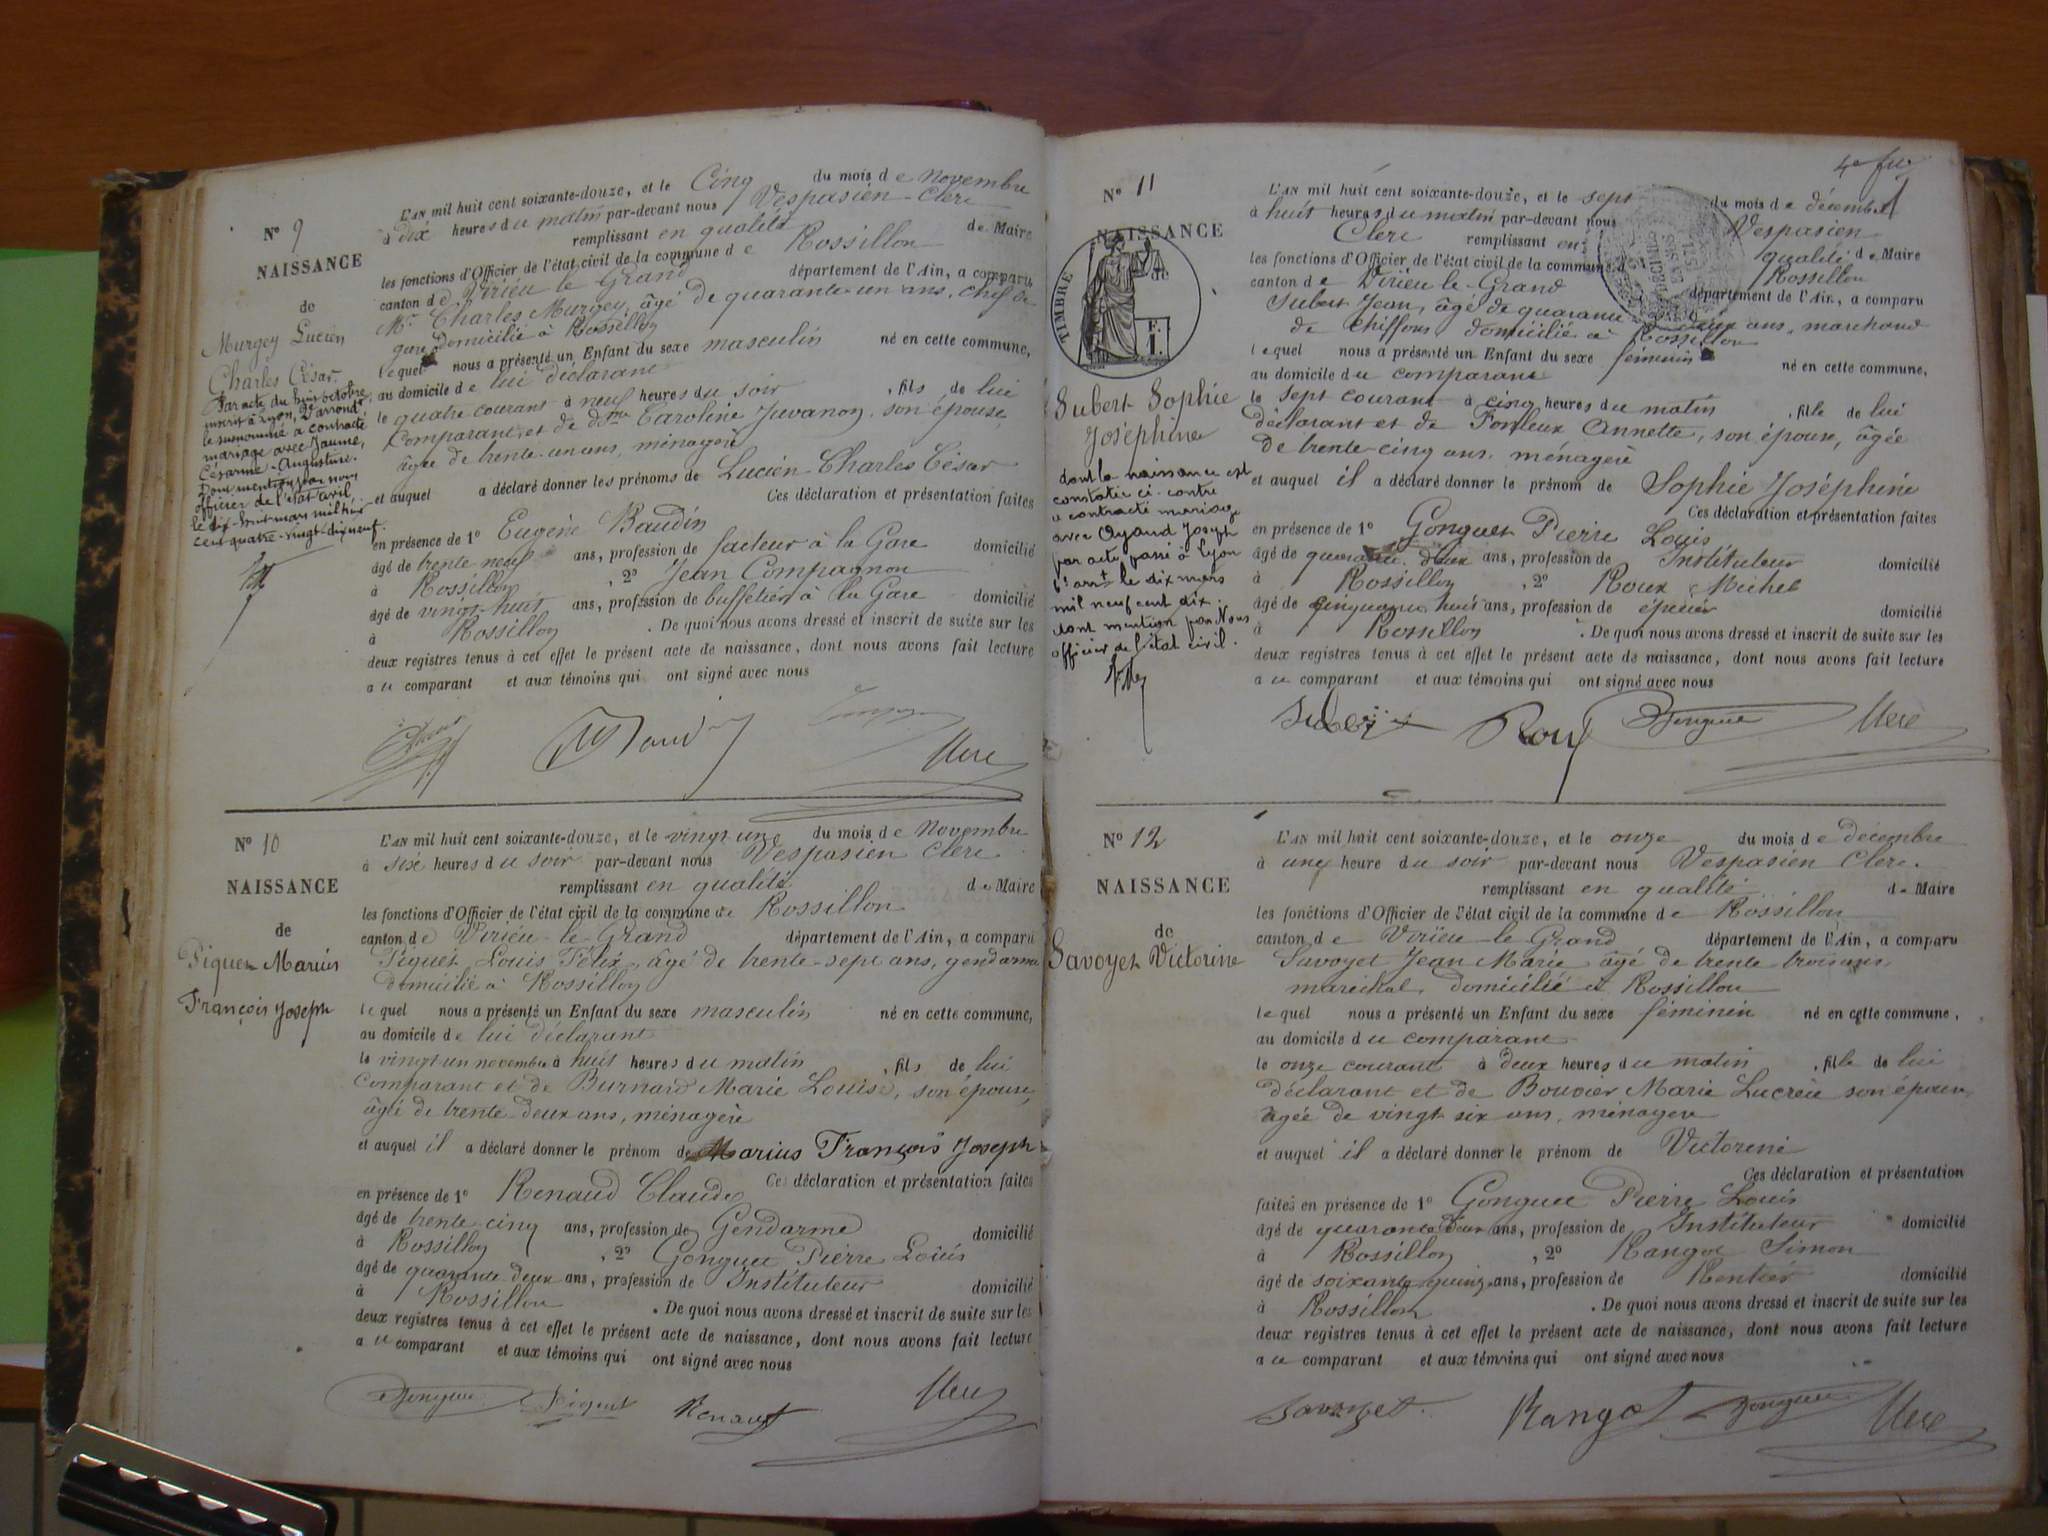 N° 9
NAISSANCE
de
Murgey Lucien
Charles César
Par acte du huit octobre
inscrit à Lyon, 2e arrondt
le susnommé a contracté
mariage avec Jaume,
Césarine-Augustine.
Dont mention par nous
officier de l'état civil,
le dix-huit mars mil huit
cent quatre-vingt-dix neuf.
L'AN mil huit cent soixante-douze, et le Cinq du mois de Novembre
à dix heures du matin par-devant nous Vespasien Clerc
remplissant en qualité de Maire
les fonctions d'Officier de l'état civil de la commune de Rossillon
canton de Virieu le Grand département de l'Ain, a comparu
Mr Charles Murgey, âgé de quarante-un ans, chef de
gare domicilié à Rossillon
lequel nous a présenté un Enfant du sexe masculin né en cette commune,
au domicile de lui déclarant
le quatre courant à neuf heures du soir, fils de lui
Comparant, et de dme Caroline Juvanon, son épouse,
âgée de trente-un ans, ménagère
et auquel a déclaré donner les prénoms de Lucien Charles César
Ces déclaration et présentation faites
en présence de 1° Eugène Baudin
âgé de trente neuf ans, profession de facteur à la Gare domicilié
à Rossillon, 2° Jean Compagnon
âgé de vingt-huit ans, profession de buffetier à la Gare domicilié
à Rossillon. De quoi nous avons dressé et inscrit de suite sur les
deux registres tenus à cet effet le présent acte de naissance, dont nous avons fait lecture
a u comparant et aux témoins qui ont signé avec nous
Baudin
Clerc
N° 10
NAISSANCE
de
Piquet Marius
François Joseph
L'AN mil huit cent soixante-douze, et le vingt-un du mois de Novembre
à six heures du soir par-devant nous Vespasien Clerc
remplissant en qualité de Maire
les fonctions d'Officier de l'état civil de la commune de Rossillon
canton de Virieu-le-Grand département de l'Ain, a comparu
Piquet Louis Félix, âgé de trente-sept ans, gendarme
domicilié à Rossillon
lequel nous a présenté un Enfant du sexe masculin né en cette commune,
au domicile de lui déclarant
le vingt un novembre à huit heures du matin, fils de lui
Comparant et de Burnard Marie Louise, son épouse,
âgée de trente-deux ans, ménagère
et auquel il a déclaré donner le prénom de Marius François Joseph
Ces déclaration et présentation faites
en présence de 1° Renaud Claude
âgé de trente cinq ans, profession de Gendarme domicilié
à Rossillon, 2° Gonguet Pierre Louis
âgé de quarante deux ans, profession de Instituteur domicilié
à Rossillon. De quoi nous avons dressé et inscrit de suite sur les
deux registres tenus à cet effet le présent acte de naissance, dont nous avons fait lecture
a u comparant et aux témoins qui ont signé avec nous
Gonguet Piquet Renaud Clerc
4e fle
N° 11
NAISSANCE
de
TIMBRE
Subert Sophie
Joséphine
dont la naissance est
constatée ci-contre
a contracté mariage
avec Ayaud Joseph
par acte passé à Lyon
le dix mars
mil neuf cent dix.
dont mention par Nous
officier de l'état civil.
L'AN mil huit cent soixante-douze, et le sept du mois de décembre
à huit heures du matin par-devant nous Vespasien
Clerc remplissant en qualité de Maire
les fonctions d'Officier de l'état civil de la commune de Rossillon
canton de Virieu-le-Grand département de l'Ain, a comparu
Subert Jean, âgé de quarante deux ans, marchand
de chiffons domicilié à Rossillon
lequel nous a présenté un Enfant du sexe féminin né en cette commune,
au domicile du comparant
le sept courant à cinq heures du matin, fille de lui
déclarant et de Fonfleux Annette, son épouse, âgée
de trente-cinq ans, ménagère
et auquel il a déclaré donner le prénom de Sophie Joséphine
Ces déclaration et présentation faites
en présence de 1° Gonguet Pierre Louis
âgé de quarante deux ans, profession de Instituteur domicilié
à Rossillon, 2° Roux Michel
âgé de cinquante huit ans, profession de épicier domicilié
à Rossillon. De quoi nous avons dressé et inscrit de suite sur les
deux registres tenus à cet effet le présent acte de naissance, dont nous avons fait lecture
a u comparant et aux témoins qui ont signé avec nous
Subert Roux Gonguet Clerc
N° 12
NAISSANCE
de
Savoyet Victorine
L'AN mil huit cent soixante-douze, et le onze du mois de décembre
à une heure du soir par-devant nous Vespasien Clerc.
remplissant en qualité de Maire
les fonctions d'Officier de l'état civil de la commune de Rossillon
canton de Virieu-le Grand département de l'Ain, a comparu
Savoyet Jean Marie âgé de trente trois ans,
maréchal, domicilié à Rossillon
lequel nous a présenté un Enfant du sexe féminin né en cette commune,
au domicile du comparant
le onze courant à deux heures du matin, fille de lui
déclarant et de Bouvier Marie Lucrèce son épouse,
âgée de vingt six ans, ménagère
et auquel il a déclaré donner le prénom de Victorine
Ces déclaration et présentation
faites en présence de 1° Gonguet Pierre Louis
âgé de quarante deux ans, profession de Instituteur domicilié
à Rossillon, 2° Rangot Simon
âgé de soixante quinze ans, profession de Rentier domicilié
à Rossillon. De quoi nous avons dressé et inscrit de suite sur les
deux registres tenus à cet effet le présent acte de naissance, dont nous avons fait lecture
a u comparant et aux témoins qui ont signé avec nous
Savoyet Rangot Gonguet Clerc